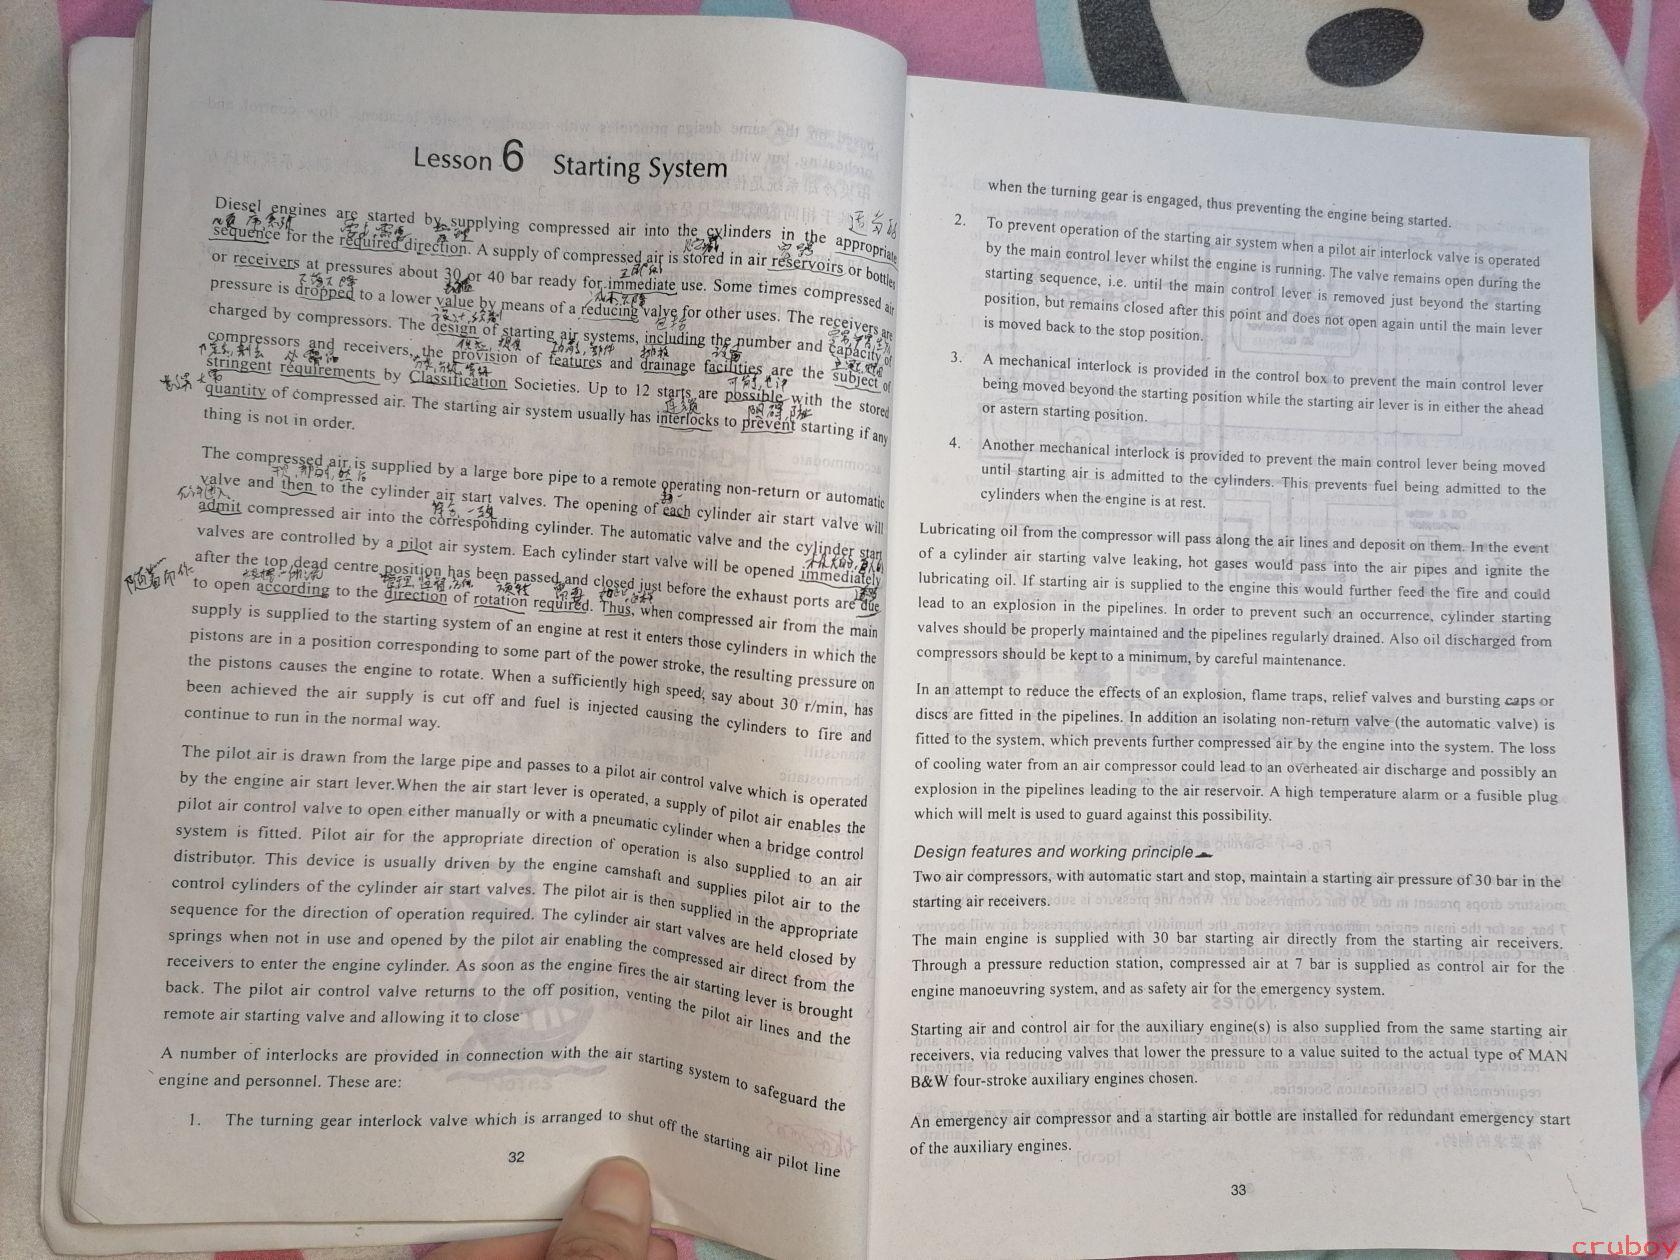 Lesson 6 Starting System
Diesel engines are started by supplying compressed air into the cylinders in the appropriate
sequence for the required direction. A supply of compressed air is stored in air reservoirs or bottles
or receivers at pressures about 30 or 40 bar ready for immediate use. Some times compressed air
pressure is dropped to a lower value by means of a reducing valve for other uses. The receivers are
charged by compressors. The design of starting air systems, including the number and capacity of
compressors and receivers, the provision of features and drainage facilities are the subject of
stringent requirements by Classification Societies. Up to 12 starts are possible with the stored
quantity of compressed air. The starting air system usually has interlocks to prevent starting if any
thing is not in order.
The compressed air is supplied by a large bore pipe to a remote operating non-return or automatic
valve and then to the cylinder air start valves. The opening of each cylinder air start valve will
admit compressed air into the corresponding cylinder. The automatic valve and the cylinder start
valves are controlled by a pilot air system. Each cylinder start valve will be opened immediately
after the top dead centre position has been passed and closed just before the exhaust ports are due
to open according to the direction of rotation required. Thus, when compressed air from the main
supply is supplied to the starting system of an engine at rest it enters those cylinders in which the
pistons are in a position corresponding to some part of the power stroke, the resulting pressure on
the pistons causes the engine to rotate. When a sufficiently high speed, say about 30 r/min, has
been achieved the air supply is cut off and fuel is injected causing the cylinders to fire and
continue to run in the normal way.
The pilot air is drawn from the large pipe and passes to a pilot air control valve which is operated
by the engine air start lever.When the air start lever is operated, a supply of pilot air enables the
pilot air control valve to open either manually or with a pneumatic cylinder when a bridge control
system is fitted. Pilot air for the appropriate direction of operation is also supplied to an air
distributor. This device is usually driven by the engine camshaft and supplies pilot air to the
control cylinders of the cylinder air start valves. The pilot air is then supplied in the appropriate
sequence for the direction of operation required. The cylinder air start valves are held closed by
springs when not in use and opened by the pilot air enabling the compressed air direct from the
receivers to enter the engine cylinder. As soon as the engine fires the air starting lever is brought
back. The pilot air control valve returns to the off position, venting the pilot air lines and the
remote air starting valve and allowing it to close
A number of interlocks are provided in connection with the air starting system to safeguard the
engine and personnel. These are:
1. The turning gear interlock valve which is arranged to shut off the starting air pilot line
32
when the turning gear is engaged, thus preventing the engine being started.
2. To prevent operation of the starting air system when a pilot air interlock valve is operated
by the main control lever whilst the engine is running. The valve remains open during the
starting sequence, i.e. until the main control lever is removed just beyond the starting
position, but remains closed after this point and does not open again until the main lever
is moved back to the stop position.
3. A mechanical interlock is provided in the control box to prevent the main control lever
being moved beyond the starting position while the starting air lever is in either the ahead
or astern starting position.
4. Another mechanical interlock is provided to prevent the main control lever being moved
until starting air is admitted to the cylinders. This prevents fuel being admitted to the
cylinders when the engine is at rest.
Lubricating oil from the compressor will pass along the air lines and deposit on them. In the event
of a cylinder air starting valve leaking, hot gases would pass into the air pipes and ignite the
lubricating oil. If starting air is supplied to the engine this would further feed the fire and could
lead to an explosion in the pipelines. In order to prevent such an occurrence, cylinder starting
valves should be properly maintained and the pipelines regularly drained. Also oil discharged from
compressors should be kept to a minimum, by careful maintenance.
In an attempt to reduce the effects of an explosion, flame traps, relief valves and bursting caps or
discs are fitted in the pipelines. In addition an isolating non-return valve (the automatic valve) is
fitted to the system, which prevents further compressed air by the engine into the system. The loss
of cooling water from an air compressor could lead to an overheated air discharge and possibly an
explosion in the pipelines leading to the air reservoir. A high temperature alarm or a fusible plug
which will melt is used to guard against this possibility.
Design features and working principle
Two air compressors, with automatic start and stop, maintain a starting air pressure of 30 bar in the
starting air receivers.
The main engine is supplied with 30 bar starting air directly from the starting air receivers.
Through a pressure reduction station, compressed air at 7 bar is supplied as control air for the
engine manoeuvring system, and as safety air for the emergency system.
Starting air and control air for the auxiliary engine(s) is also supplied from the same starting air
receivers, via reducing valves that lower the pressure to a value suited to the actual type of MAN
B&W four-stroke auxiliary engines chosen.
An emergency air compressor and a starting air bottle are installed for redundant emergency start
of the auxiliary engines.
33
cruboy